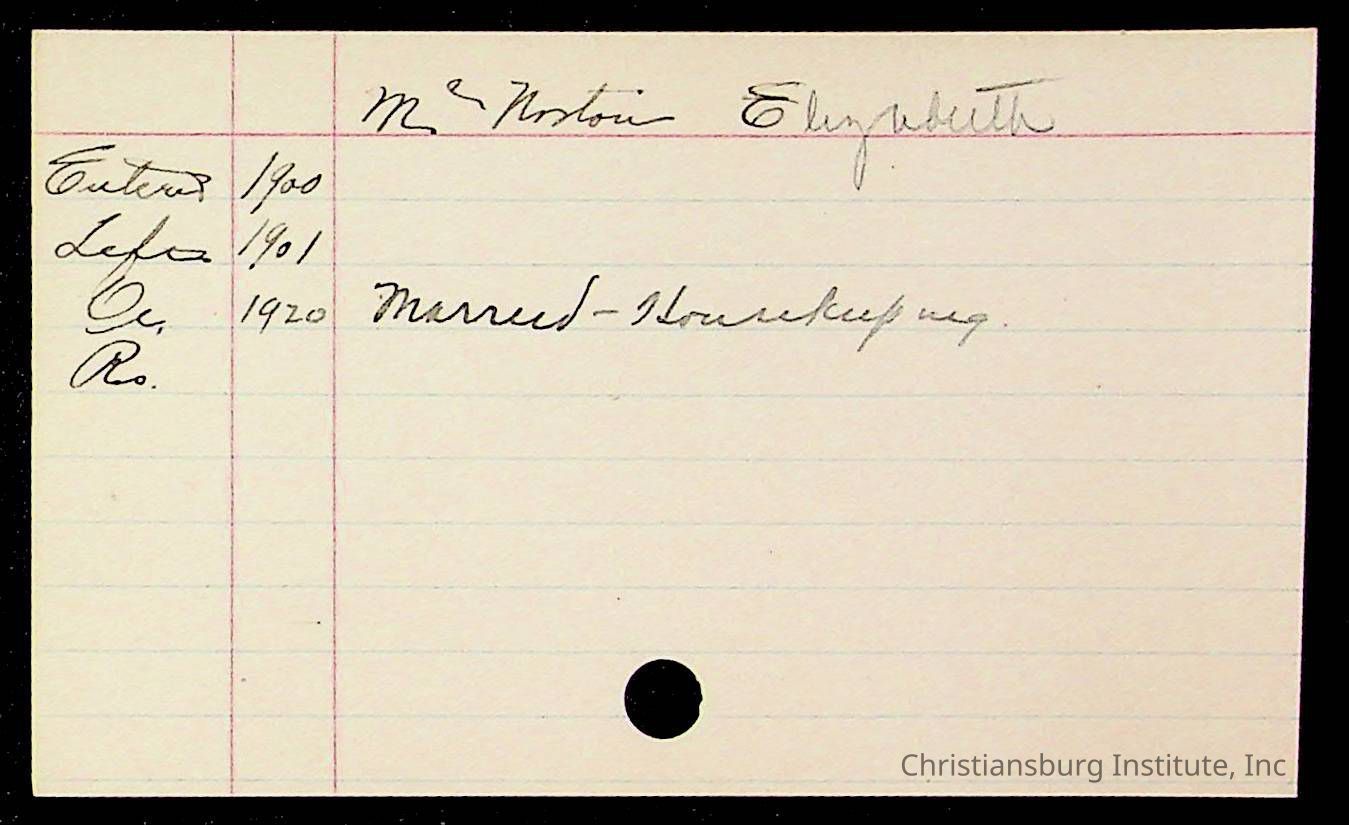 Mc Norton Elizabeth
Entered 1900
Left 1901
Oc. 1920 Married - Housekeeping.
Rs.
Christiansburg Institute, Inc